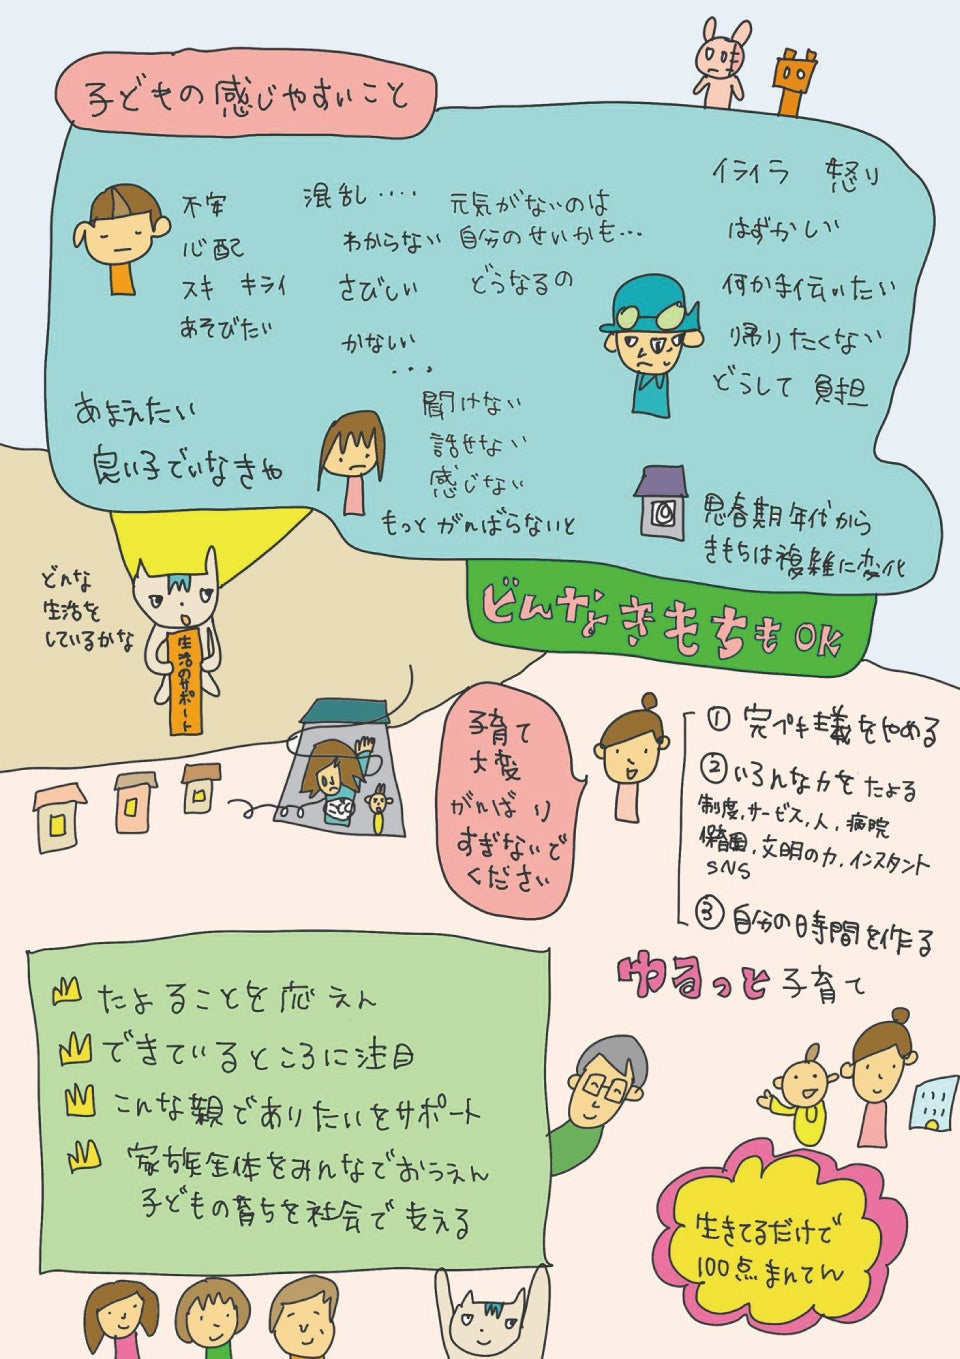 子どもの感じやすいこと
不安
心配
スキ キライ
あそびたい
混乱‥‥
わからない
さびしい
かなしい
・・・
元気がないのは
自分のせいかも…
どうなるの
イライラ 怒り
はずかしい
何か手伝いたい
帰りたくない
どうして 負担
あまえたい
良い子でいなきゃ
聞けない
話せない
感じない
もっと がんばらないと
思春期年代から
きもちは複雑に変化
どんなきもちもOK
どんな
生活を
しているかな
生活のサポート
子育て
大変
がんばり
すぎないで
ください
① 完ペキ主義をやめる
② いろんな力をたよる
制度、サービス、人、病院
保育園、文明の力、インスタント
SNS
③ 自分の時間を作る
ゆるっと子育て
たよることを応えん
できているところに注目
こんな親でありたいをサポート
家族全体をみんなでおうえん
子どもの育ちを社会で支える
生きてるだけで
100点まんてん